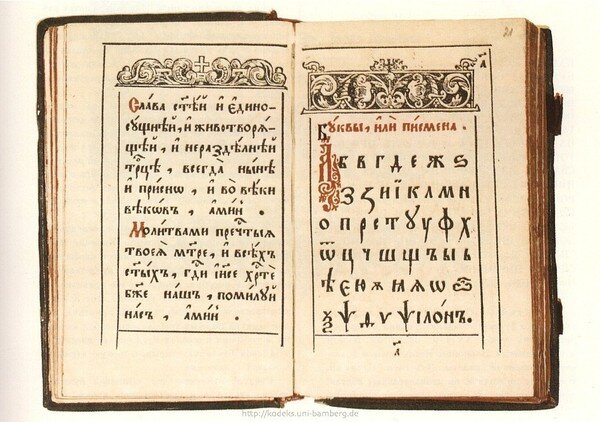 21
Сла́ва ст҃ѣ́й и҆ є҆дино-
сꙋ́щнѣй, и҆ животворѧ́-
щѣй, и҆ нераздѣ́лнѣй
трⷪ҇цѣ, всегда̀ ны́нѣ
и҆ при́снѡ, и҆ во̀ вѣ́ки
вѣкѡ́въ, а҆ми́нь.
Моли́твами пречⷭ҇тыѧ
твоеѧ̀ мт҃ре, и҆ всѣ́хъ
ст҃ы́хъ, гдⷭ҇и і҆и҃се хрⷭ҇те
бж҃е на́шъ, поми́лꙋй
на́съ, а҆ми́нь.
Бꙋ́квы, и҆лѝ пи́смена.
А б в г д е ж ѕ
з ꙁ и ї к л м н
о п р с т ꙋ у ф х
ѿ ц ч ш щ ъ ы ь
ѣ є ю ѫ ꙗ ѧ ѡ ѽ
ѯ ѱ ѵ ѱїло́нъ.
http://kodeks.uni-bamberg.de